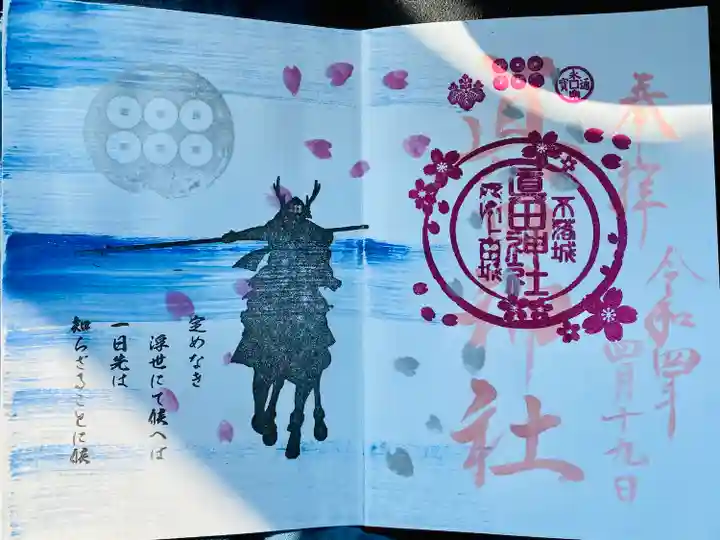 奉拝
眞田神社
令和四年
四月十九日
不落城
眞田神社
上田城
永
通
寳
定めなき
浮世にて候へば
一日先は
知らざることに候